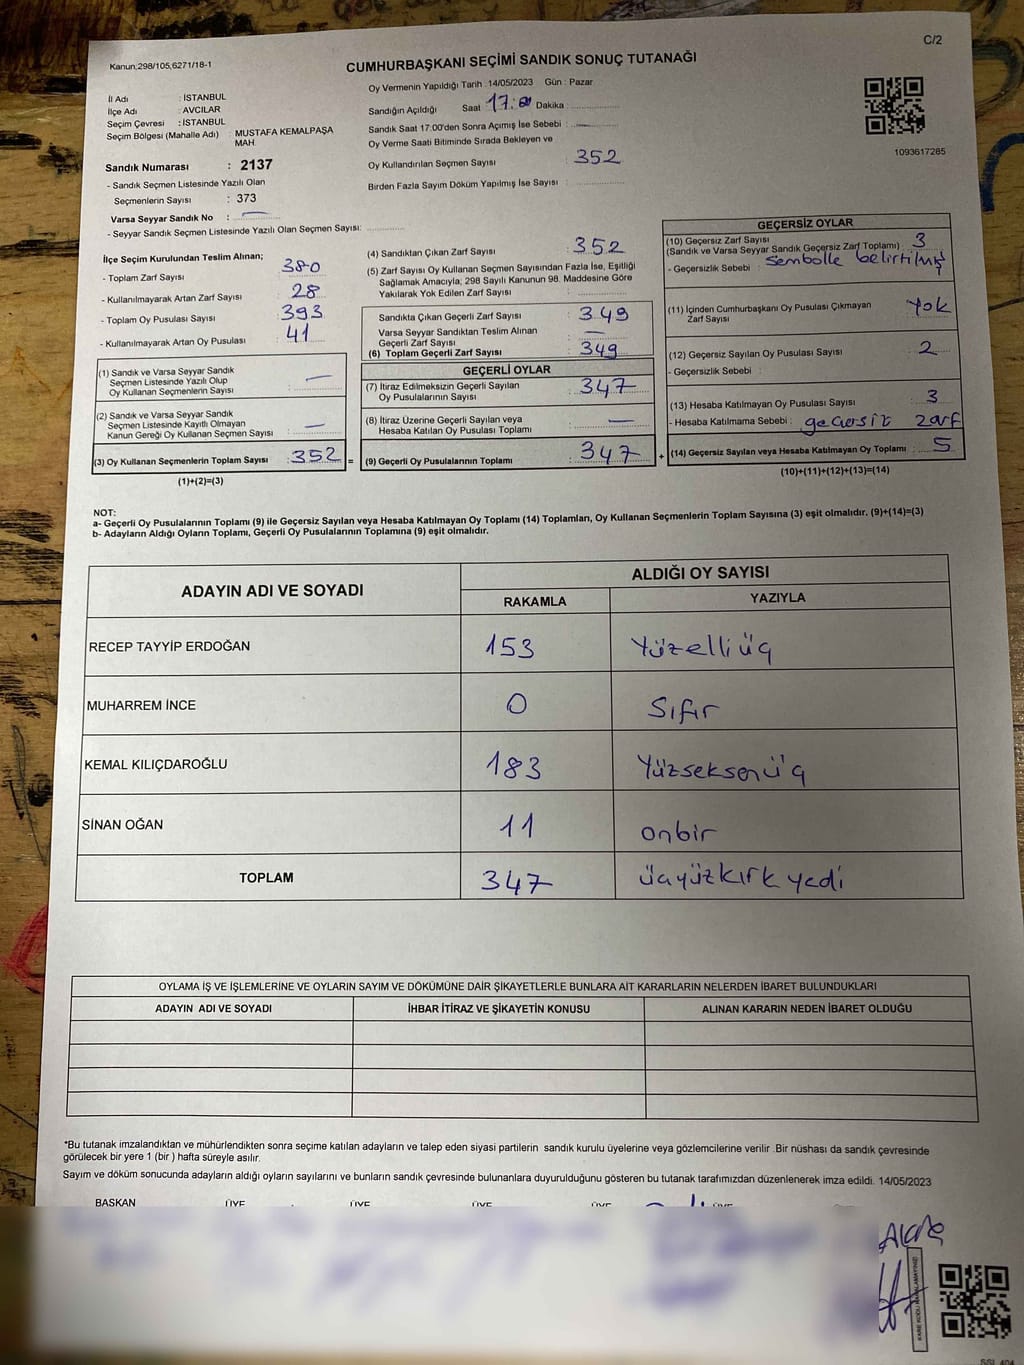 C/2
Kanun:298/105,6271/18-1
CUMHURBAŞKANI SEÇİMİ SANDIK SONUÇ TUTANAĞI
İl Adı : İSTANBUL
İlçe Adı : AVCILAR
Seçim Çevresi : İSTANBUL
Seçim Bölgesi (Mahalle Adı) : MUSTAFA KEMALPAŞA
MAH.
Sandık Numarası : 2137
- Sandık Seçmen Listesinde Yazılı Olan
Seçmenlerin Sayısı : 373
Varsa Seyyar Sandık No : —
- Seyyar Sandık Seçmen Listesinde Yazılı Olan Seçmen Sayısı:
Oy Vermenin Yapıldığı Tarih : 14/05/2023 Gün : Pazar
Sandığın Açıldığı Saat 17:00 Dakika :
Sandık Saat 17:00'den Sonra Açımış İse Sebebi : —
Oy Verme Saati Bitiminde Sırada Bekleyen ve
Oy Kullandırılan Seçmen Sayısı : 352
Birden Fazla Sayım Döküm Yapılmış İse Sayısı :
1093617285
İlçe Seçim Kurulundan Teslim Alınan;
- Toplam Zarf Sayısı : 380
- Kullanılmayarak Artan Zarf Sayısı : 28
- Toplam Oy Pusulası Sayısı : 393
- Kullanılmayarak Artan Oy Pusulası : 41
(1) Sandık ve Varsa Seyyar Sandık
Seçmen Listesinde Yazılı Olup
Oy Kullanan Seçmenlerin Sayısı : —
(2) Sandık ve Varsa Seyyar Sandık
Seçmen Listesinde Kayıtlı Olmayan
Kanun Gereği Oy Kullanan Seçmen Sayısı : —
(3) Oy Kullanan Seçmenlerin Toplam Sayısı : 352 =
(1)+(2)=(3)
(4) Sandıktan Çıkan Zarf Sayısı : 352
(5) Zarf Sayısı Oy Kullanan Seçmen Sayısından Fazla İse, Eşitliği
Sağlamak Amacıyla; 298 Sayılı Kanunun 98. Maddesine Göre
Yakılarak Yok Edilen Zarf Sayısı :
Sandıkta Çıkan Geçerli Zarf Sayısı : 349
Varsa Seyyar Sandıktan Teslim Alınan
Geçerli Zarf Sayısı : —
(6) Toplam Geçerli Zarf Sayısı : 349
GEÇERLİ OYLAR
(7) İtiraz Edilmeksizin Geçerli Sayılan
Oy Pusulalarının Sayısı : 347
(8) İtiraz Üzerine Geçerli Sayılan veya
Hesaba Katılan Oy Pusulası Toplamı : —
(9) Geçerli Oy Pusulalarının Toplamı : 347 +
GEÇERSİZ OYLAR
(10) Geçersiz Zarf Sayısı
(Sandık ve Varsa Seyyar Sandık Geçersiz Zarf Toplamı) : 3
- Geçersizlik Sebebi : Sembolle belirtilmiş
(11) İçinden Cumhurbaşkanı Oy Pusulası Çıkmayan
Zarf Sayısı : Yok
(12) Geçersiz Sayılan Oy Pusulası Sayısı : 2
- Geçersizlik Sebebi :
(13) Hesaba Katılmayan Oy Pusulası Sayısı : 3
- Hesaba Katılmama Sebebi : geçersiz zarf
(14) Geçersiz Sayılan veya Hesaba Katılmayan Oy Toplamı : 5
(10)+(11)+(12)+(13)=(14)
NOT:
a- Geçerli Oy Pusulalarının Toplamı (9) ile Geçersiz Sayılan veya Hesaba Katılmayan Oy Toplamı (14) Toplamları, Oy Kullanan Seçmenlerin Toplam Sayısına (3) eşit olmalıdır. (9)+(14)=(3)
b- Adayların Aldığı Oyların Toplamı, Geçerli Oy Pusulalarının Toplamına (9) eşit olmalıdır.
ADAYIN ADI VE SOYADI
ALDIĞI OY SAYISI
RAKAMLA YAZIYLA
RECEP TAYYİP ERDOĞAN 153 Yüzelliüç
MUHARREM İNCE 0 Sıfır
KEMAL KILIÇDAROĞLU 183 Yüzseksenüç
SİNAN OĞAN 11 onbir
TOPLAM 347 üçyüzkırkyedi
OYLAMA İŞ VE İŞLEMLERİNE VE OYLARIN SAYIM VE DÖKÜMÜNE DAİR ŞİKAYETLERLE BUNLARA AİT KARARLARIN NELERDEN İBARET BULUNDUKLARI
ADAYIN ADI VE SOYADI İHBAR İTİRAZ VE ŞİKAYETİN KONUSU ALINAN KARARIN NEDEN İBARET OLDUĞU
*Bu tutanak imzalandıktan ve mühürlendikten sonra seçime katılan adayların ve talep eden siyasi partilerin sandık kurulu üyelerine veya gözlemcilerine verilir .Bir nüshası da sandık çevresinde
görülecek bir yere 1 (bir ) hafta süreyle asılır.
Sayım ve döküm sonucunda adayların aldığı oyların sayılarını ve bunların sandık çevresinde bulunanlara duyurulduğunu gösteren bu tutanak tarafımızdan düzenlenerek imza edildi. 14/05/2023
BAŞKAN ÜYE ÜYE ÜYE ÜYE ÜYE